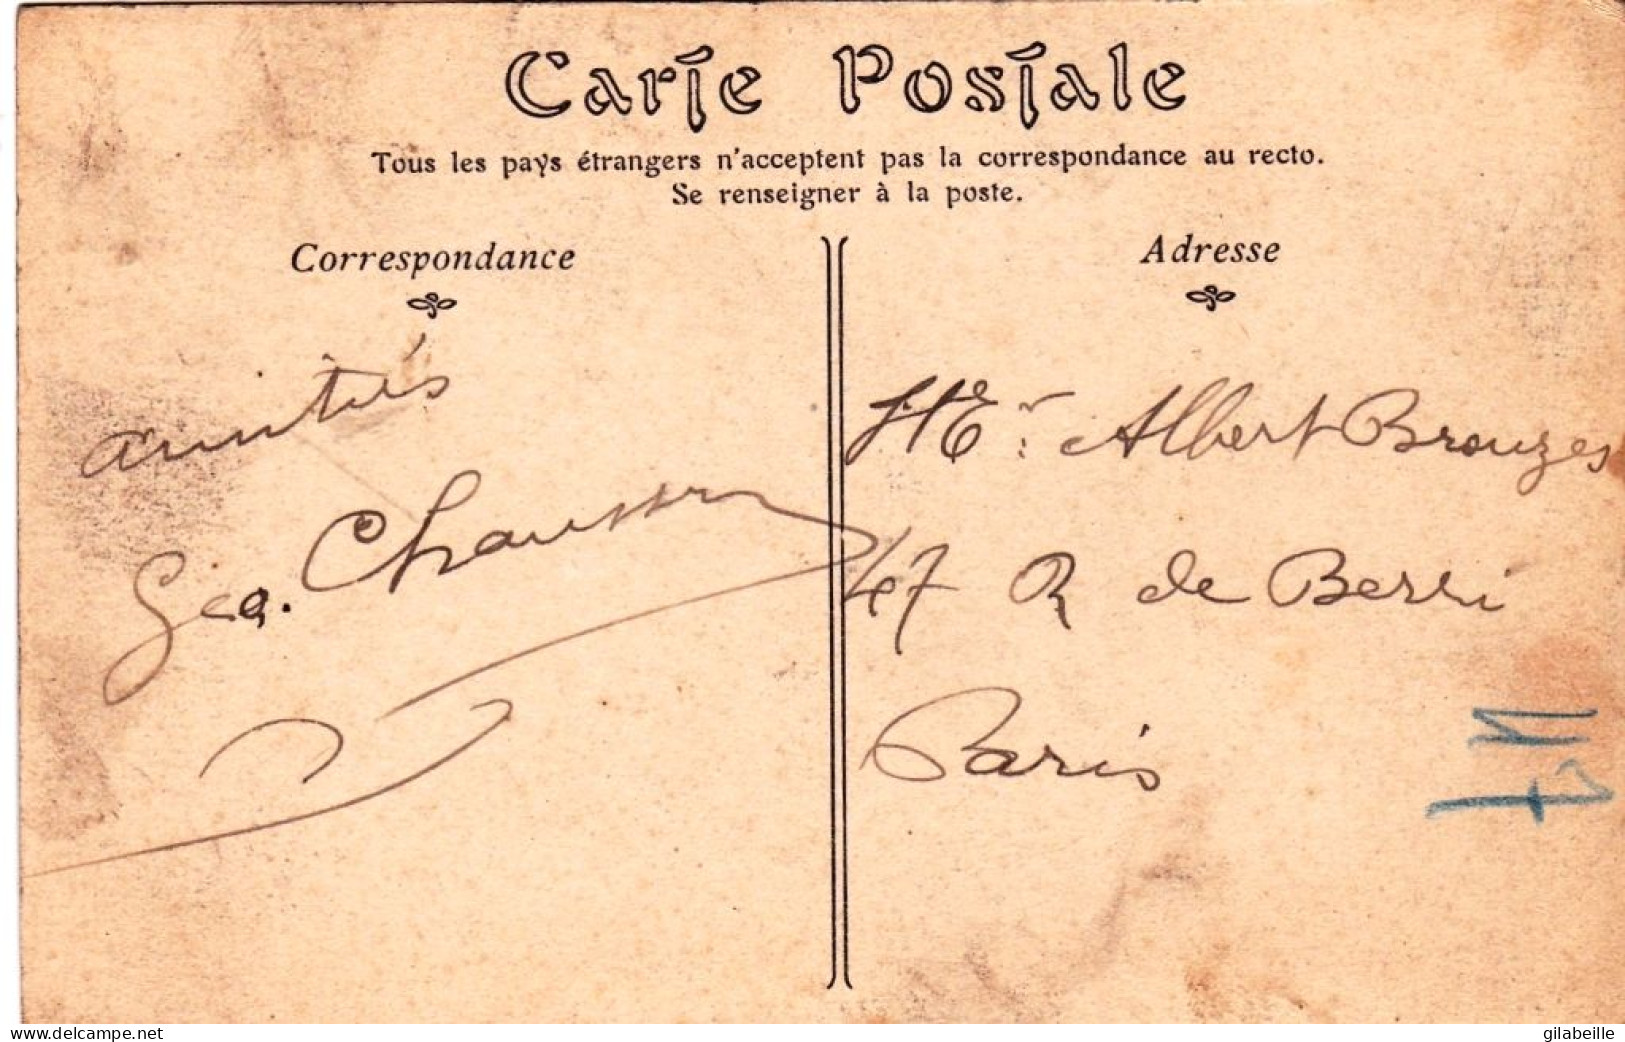 Carte Postale
Tous les pays étrangers n'acceptent pas la correspondance au recto.
Se renseigner à la poste.
Correspondance
Adresse
amitiés
Geo. Chausson
Mr. Albert Brouzes
47 R de Berri
Paris
www.delcampe.net
gilabeille